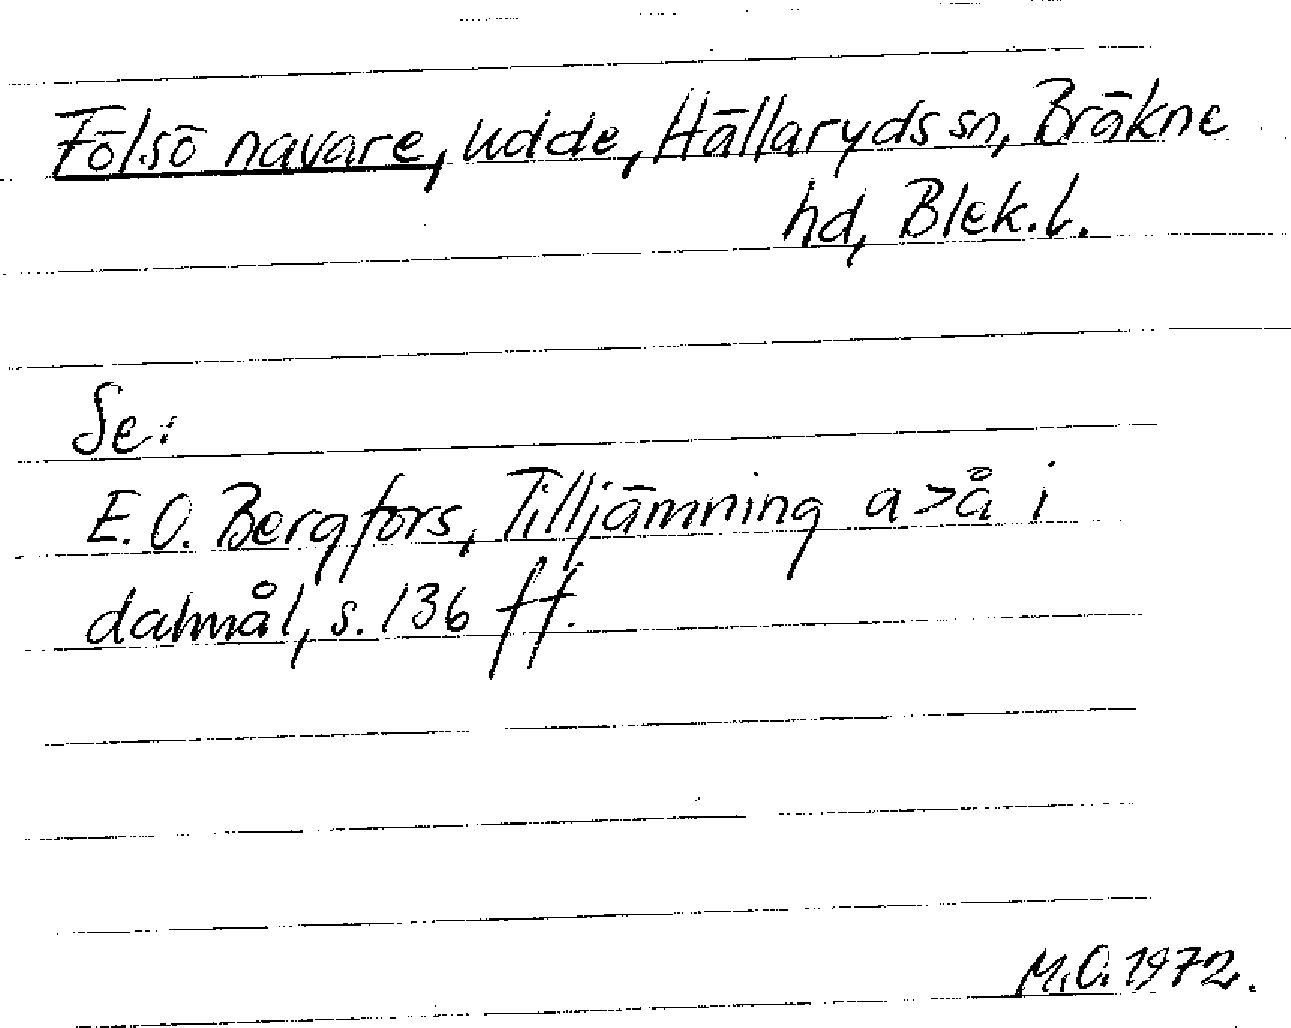 Fölsö navare, udde, Hällaryds sn, Bräkne
hd, Blek.l.
Se:
E.O. Bergfors, Tilljämning a>å i
dalmål, s. 136 ff.
M.O. 1972.